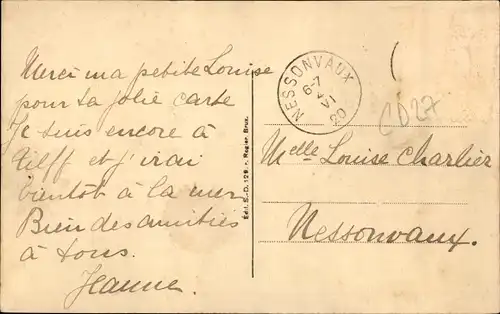 Merci ma petite Louise
pour ta jolie carte
Je suis encore à
Tilff et j'irai
bientôt à la mer
Bien des amitiés
à tous.
Jeanne.
Edit. S.-D. 129. - Regier, Brux.
NESSONVAUX
6-7
VI
20
CD27
Melle Louise Charlier
Nessonvaux.